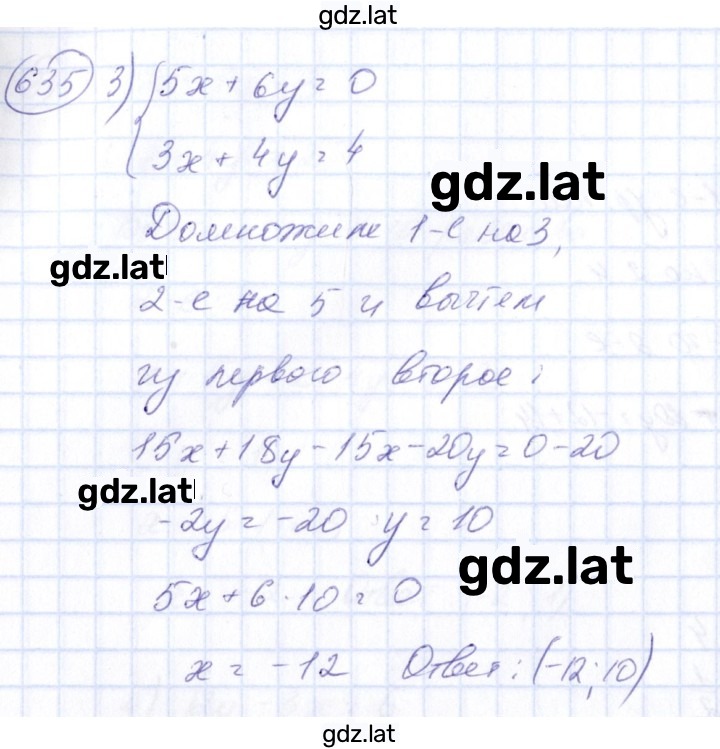 gdz.lat
635 3) { 5x + 6y = 0
3x + 4y = 4
gdz.lat
Домножим 1-е на 3,
gdz.lat
2-е на 5 и вычтем
из первого второе:
15x + 18y - 15x - 20y = 0 - 20
gdz.lat
-2y = -20 y = 10
gdz.lat
5x + 6 · 10 = 0
x = -12 Ответ: (-12; 10)
gdz.lat